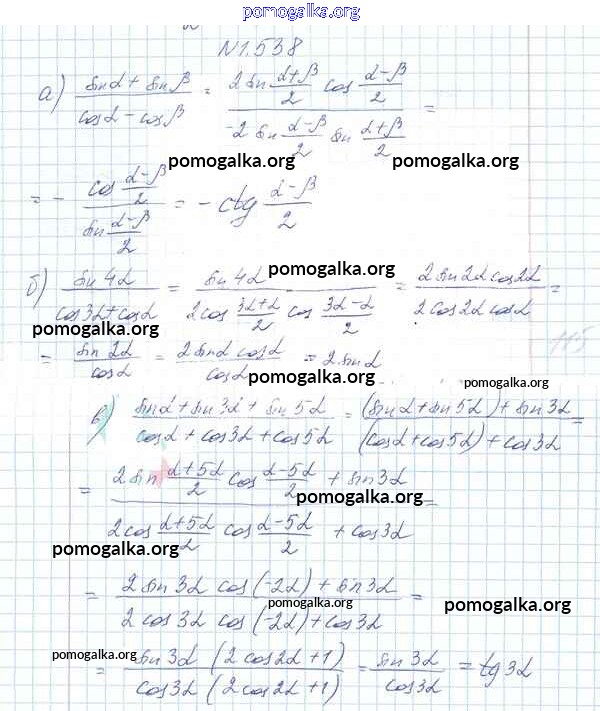 pomogalka.org
N1.538
а) (sin α + sin β)/(cos α - cos β) = (2 sin (α+β)/2 cos (α-β)/2)/(-2 sin (α-β)/2 sin (α+β)/2) =
pomogalka.org pomogalka.org
= - (cos (α-β)/2)/(sin (α-β)/2) = - ctg (α-β)/2
pomogalka.org
б) (sin 4α)/(cos 3α + cos α) = (sin 4α)/(2 cos (3α+α)/2 cos (3α-α)/2) = (2 sin 2α cos 2α)/(2 cos 2α cos α) =
pomogalka.org
= (sin 2α)/(cos α) = (2 sin α cos α)/(cos α) = 2 sin α
115
pomogalka.org pomogalka.org
в) (sin α + sin 3α + sin 5α)/(cos α + cos 3α + cos 5α) = ((sin α + sin 5α) + sin 3α)/((cos α + cos 5α) + cos 3α) =
= (2 sin (α+5α)/2 cos (α-5α)/2 + sin 3α)/(2 cos (α+5α)/2 cos (α-5α)/2 + cos 3α) =
pomogalka.org
pomogalka.org
= (2 sin 3α cos (-2α) + sin 3α)/(2 cos 3α cos (-2α) + cos 3α) =
pomogalka.org pomogalka.org
pomogalka.org
= (sin 3α (2 cos 2α + 1))/(cos 3α (2 cos 2α + 1)) = (sin 3α)/(cos 3α) = tg 3α